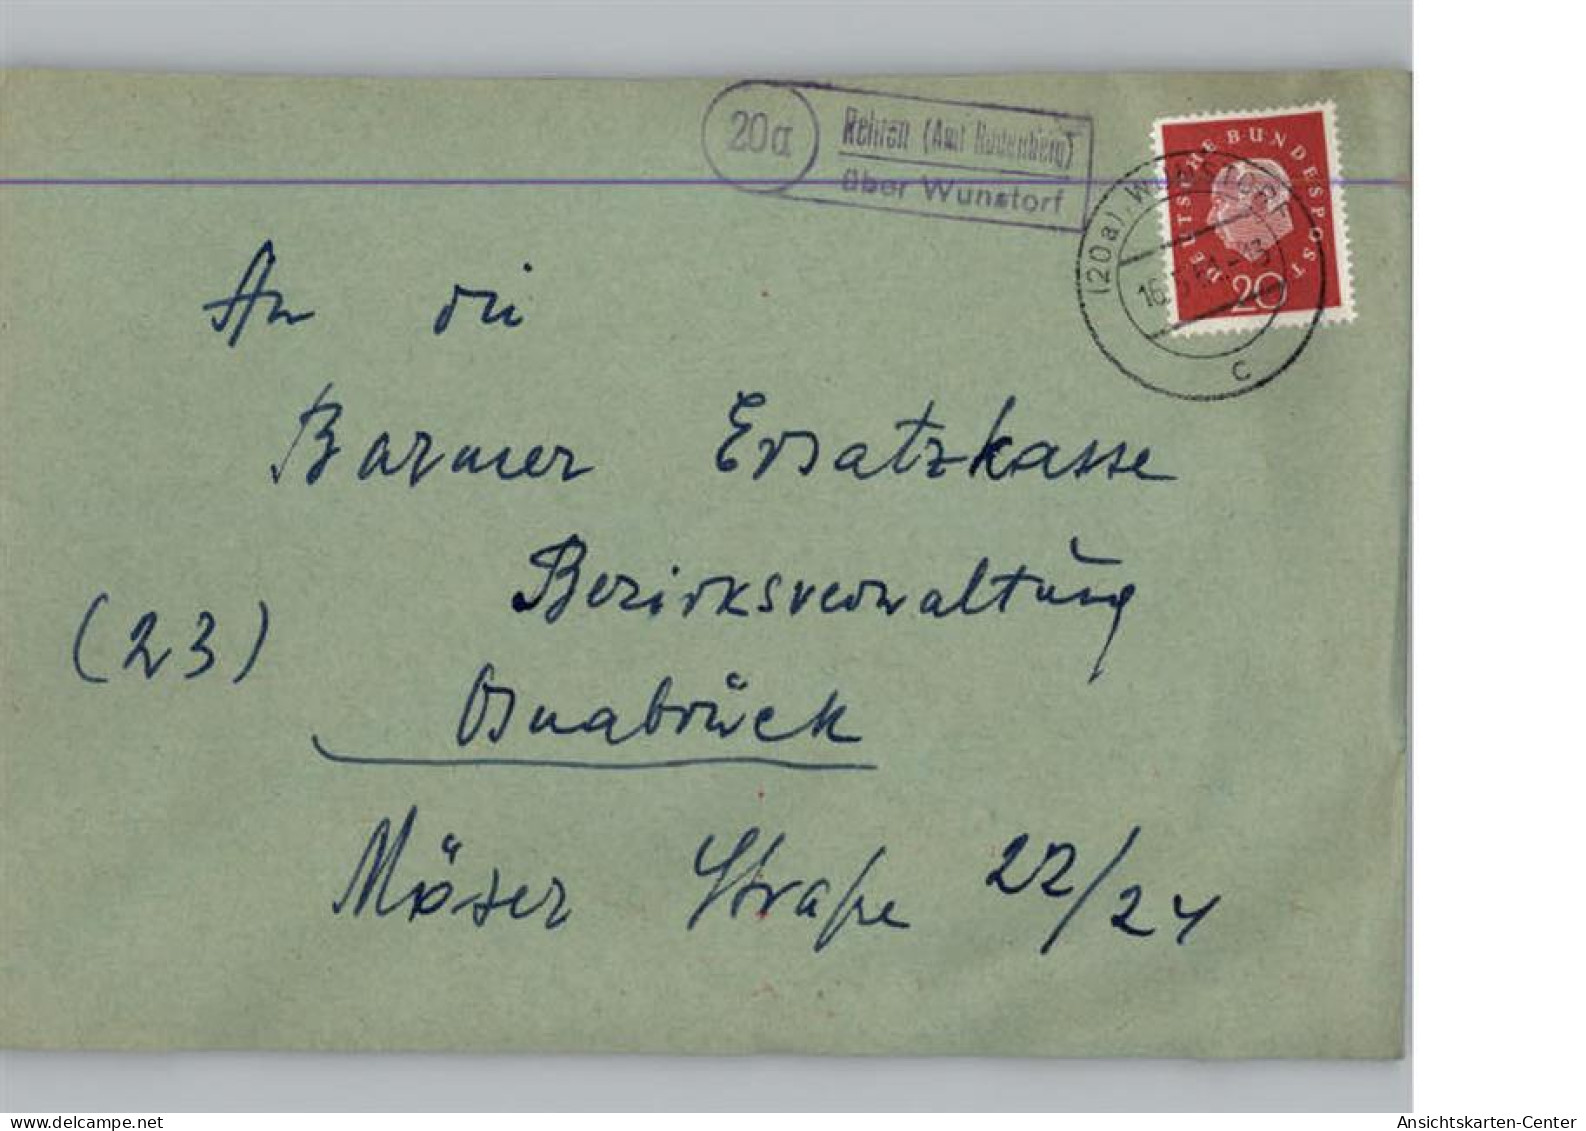 20a
Rehren (Amt Rodenberg)
über Wunstorf
DEUTSCHE BUNDESPOST
20
(20a) WUNSTORF
c
An die
Barmer Ersatzkasse
Bezirksverwaltung
(23)
Osnabrück
Möser Straße 22/24
Ansichtskarten-Center